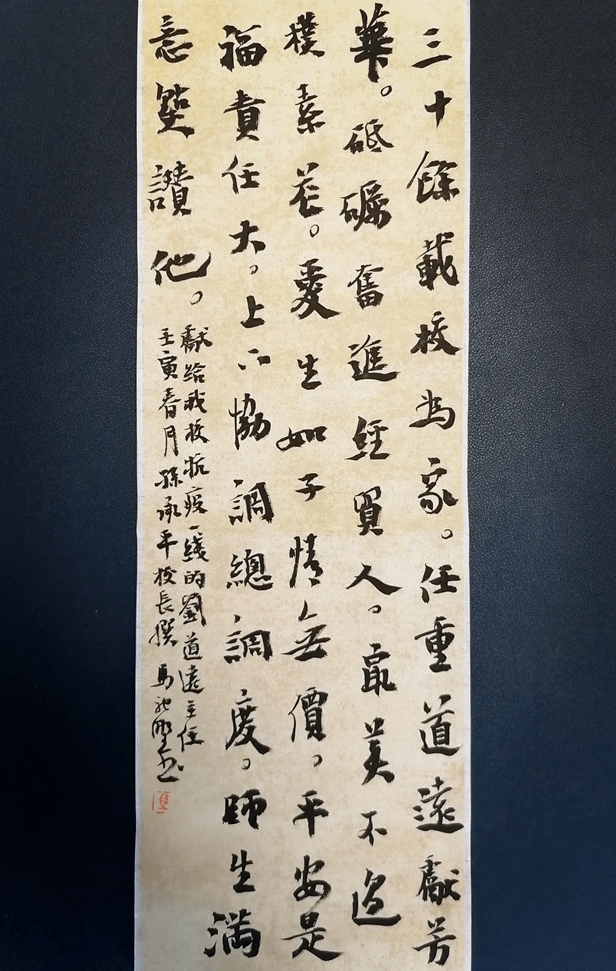 三十餘載校為家。任重道遠獻芳
華。砥礪奮進經貿人。最美不過
樸素花。愛生如子情無價。平安是
福責任大。上下協調總調度。師生滿
意點讚他。
獻給我校抗疫一綫的劉道遠主任
壬寅春月孫承平校長撰 馬書